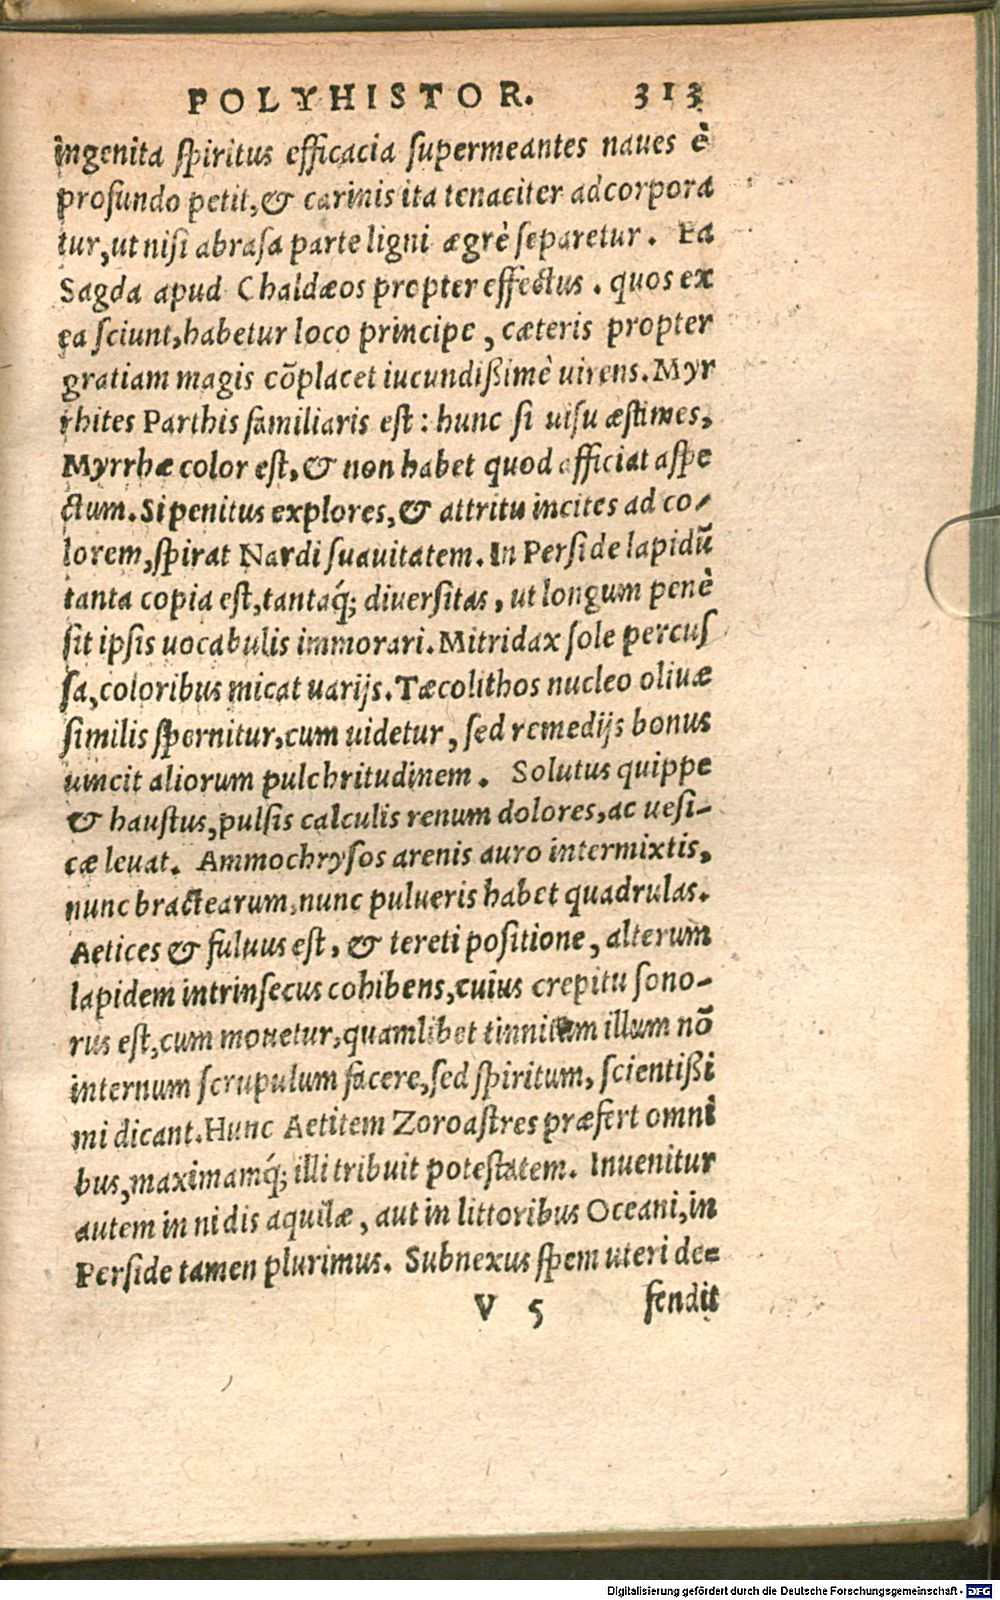 POLYHISTOR. 313
ingenita spiritus efficacia supermeantes naues è
profundo petit, & carinis ita tenaciter adcorpora
tur, ut nisi abrasa parte ligni ægrè separetur. Ea
Sagda apud Chaldæos propter effectus. quos ex
ea sciunt, habetur loco principe, cæteris propter
gratiam magis cõplacet iucundißimè uirens. Myr
rhites Parthis familiaris est: hunc si uisu æstimes,
Myrrhæ color est, & non habet quod afficiat aspe
ctum. Si penitus explores, & attritu incites ad co-
lorem, spirat Nardi suauitatem. In Perside lapidũ
tanta copia est, tantaq́; diuersitas, ut longum penè
sit ipsis uocabulis immorari. Mitridax sole percus
sa, coloribus micat uarijs. Tæcolithos nucleo oliuæ
similis spernitur, cum uidetur, sed remedijs bonus
uincit aliorum pulchritudinem. Solutus quippe
& haustus, pulsis calculis renum dolores, ac uesi-
cæ leuat. Ammochrysos arenis auro intermixtis,
nunc bractearum, nunc pulueris habet quadrulas.
Aetices & fuluus est, & tereti positione, alterum
lapidem intrinsecus cohibens, cuius crepitu sono-
rus est, cum mouetur, quamlibet tinnitum illum nõ
internum scrupulum facere, sed spiritum, scientißi
mi dicant. Hunc Aetitem Zoroastres præfert omni
bus, maximamq́; illi tribuit potestatem. Inuenitur
autem in nidis aquilæ, aut in littoribus Oceani, in
Perside tamen plurimus. Subnexus spem uteri de=
V 5 fendit
Digitalisierung gefördert durch die Deutsche Forschungsgemeinschaft - DFG